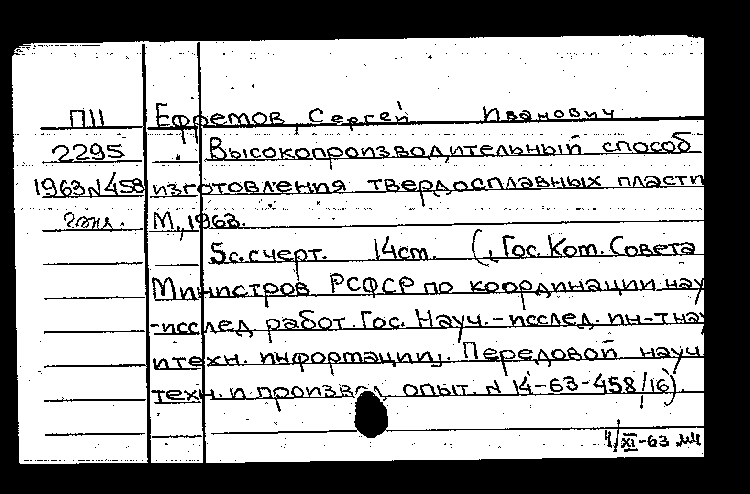 П11 Ефремов, Сергей Иванович
2295 Высокопроизводительный способ
1963 N458 изготовления твердосплавных пласти
М., 1963.
5с.счерт. 14ст. (, Гос. Ком. Совета
Министров РСФСР по координации нау
-исслед. работ. Гос. Науч.-исслед. ин-т нау
и техн. информации,. Передовой науч
техн. и произвол опыт. N 14-63-458/16).
4/XI-63